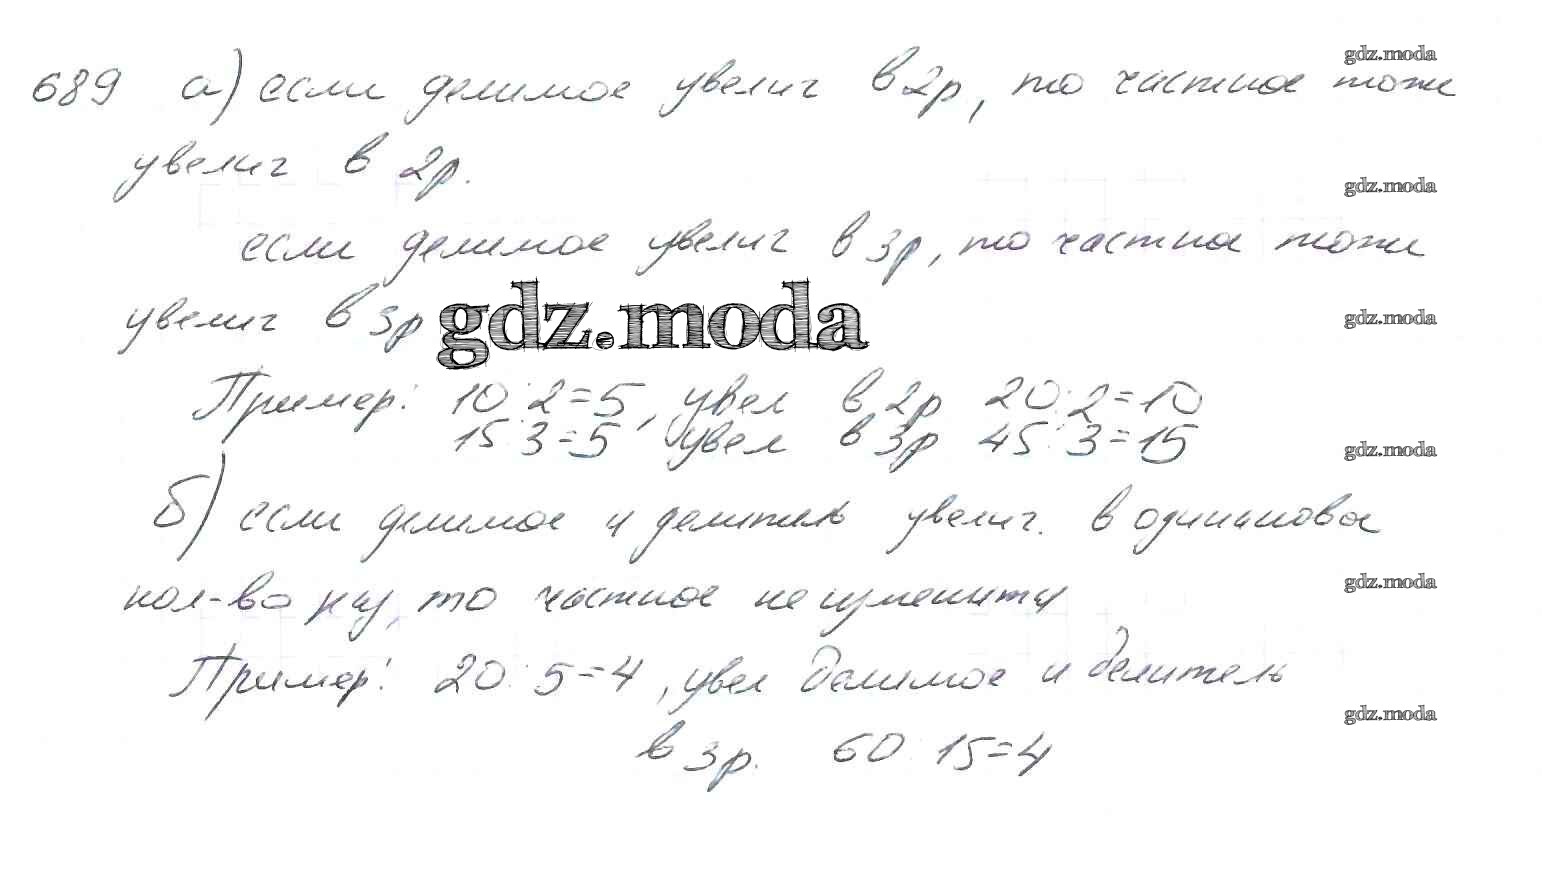 689 а) если делимое увелич в 2р, то частное тоже
увелич в 2р.
если делимое увелич в 3р, то частное тоже
увелич в 3р
Пример: 10:2=5, увел в 2р 20:2=10
15:3=5 увел в 3р 45:3=15
б) если делимое и делитель увелич. в одинаковое
кол-во раз, то частное не изменится
Пример: 20:5=4, увел делимое и делитель
в 3р. 60:15=4
gdz.moda
gdz.moda
gdz.moda
gdz.moda
gdz.moda
gdz.moda
gdz.moda